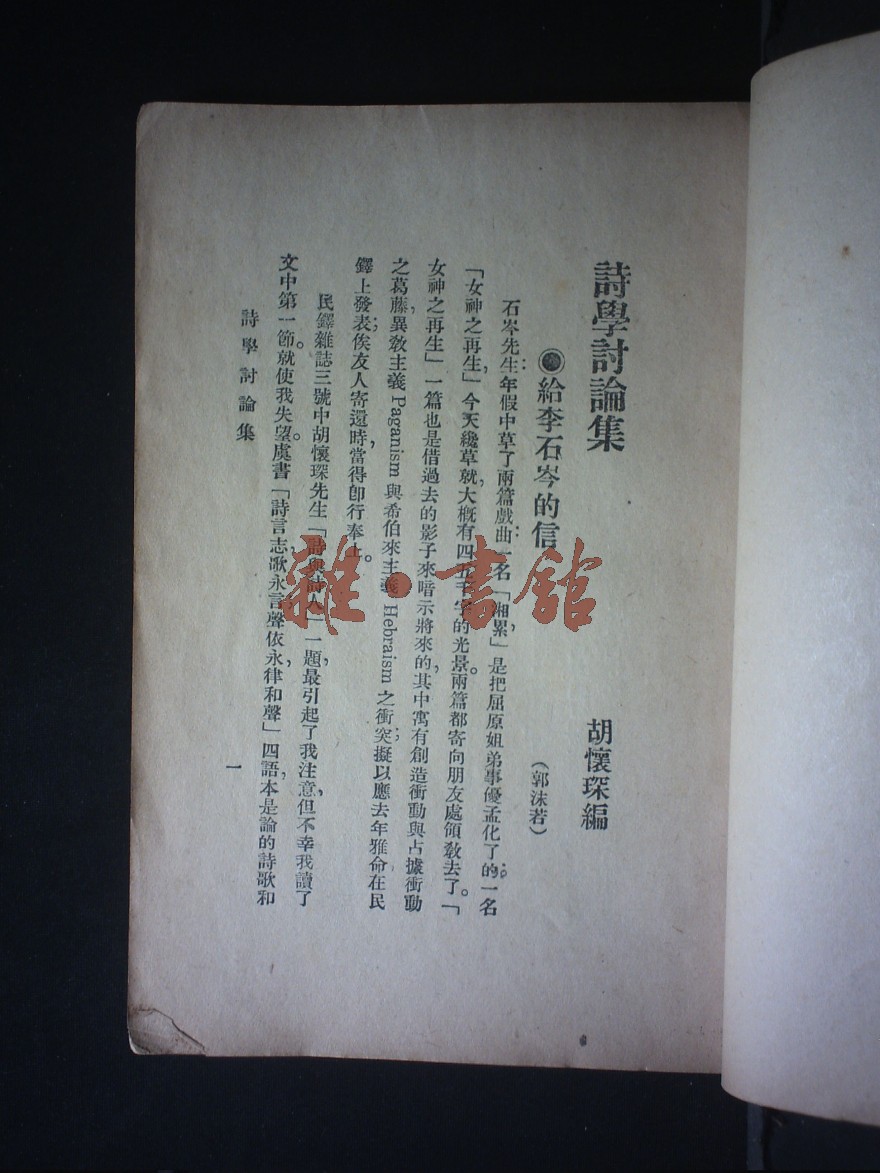 詩學討論集
胡懷琛編
給李石岑的信
（郭沫若）
石岑先生：年假中草了兩篇戲曲：一名「湘累」，是把屈原姐弟事優孟化了的。一名
「女神之再生」，今天纔草就，大概有四五千字的光景。兩篇都寄向朋友處領敎去了。「
女神之再生」一篇也是借過去的影子來暗示將來的，其中寓有創造衝動與占據衝動
之葛藤，異敎主義 Paganism 與希伯來主義 Hebraism 之衝突；擬以應去年雅命在民
鐸上發表；俟友人寄還時，當得卽行奉上。
民鐸雜誌三號中胡懷琛先生「詩與詩人」一題，最引起了我注意，但不幸我讀了
文中第一節。就使我失望。虞書「詩言志，歌永言，聲依永，律和聲」四語，本是論的詩歌和
詩學討論集
一
雜·書館